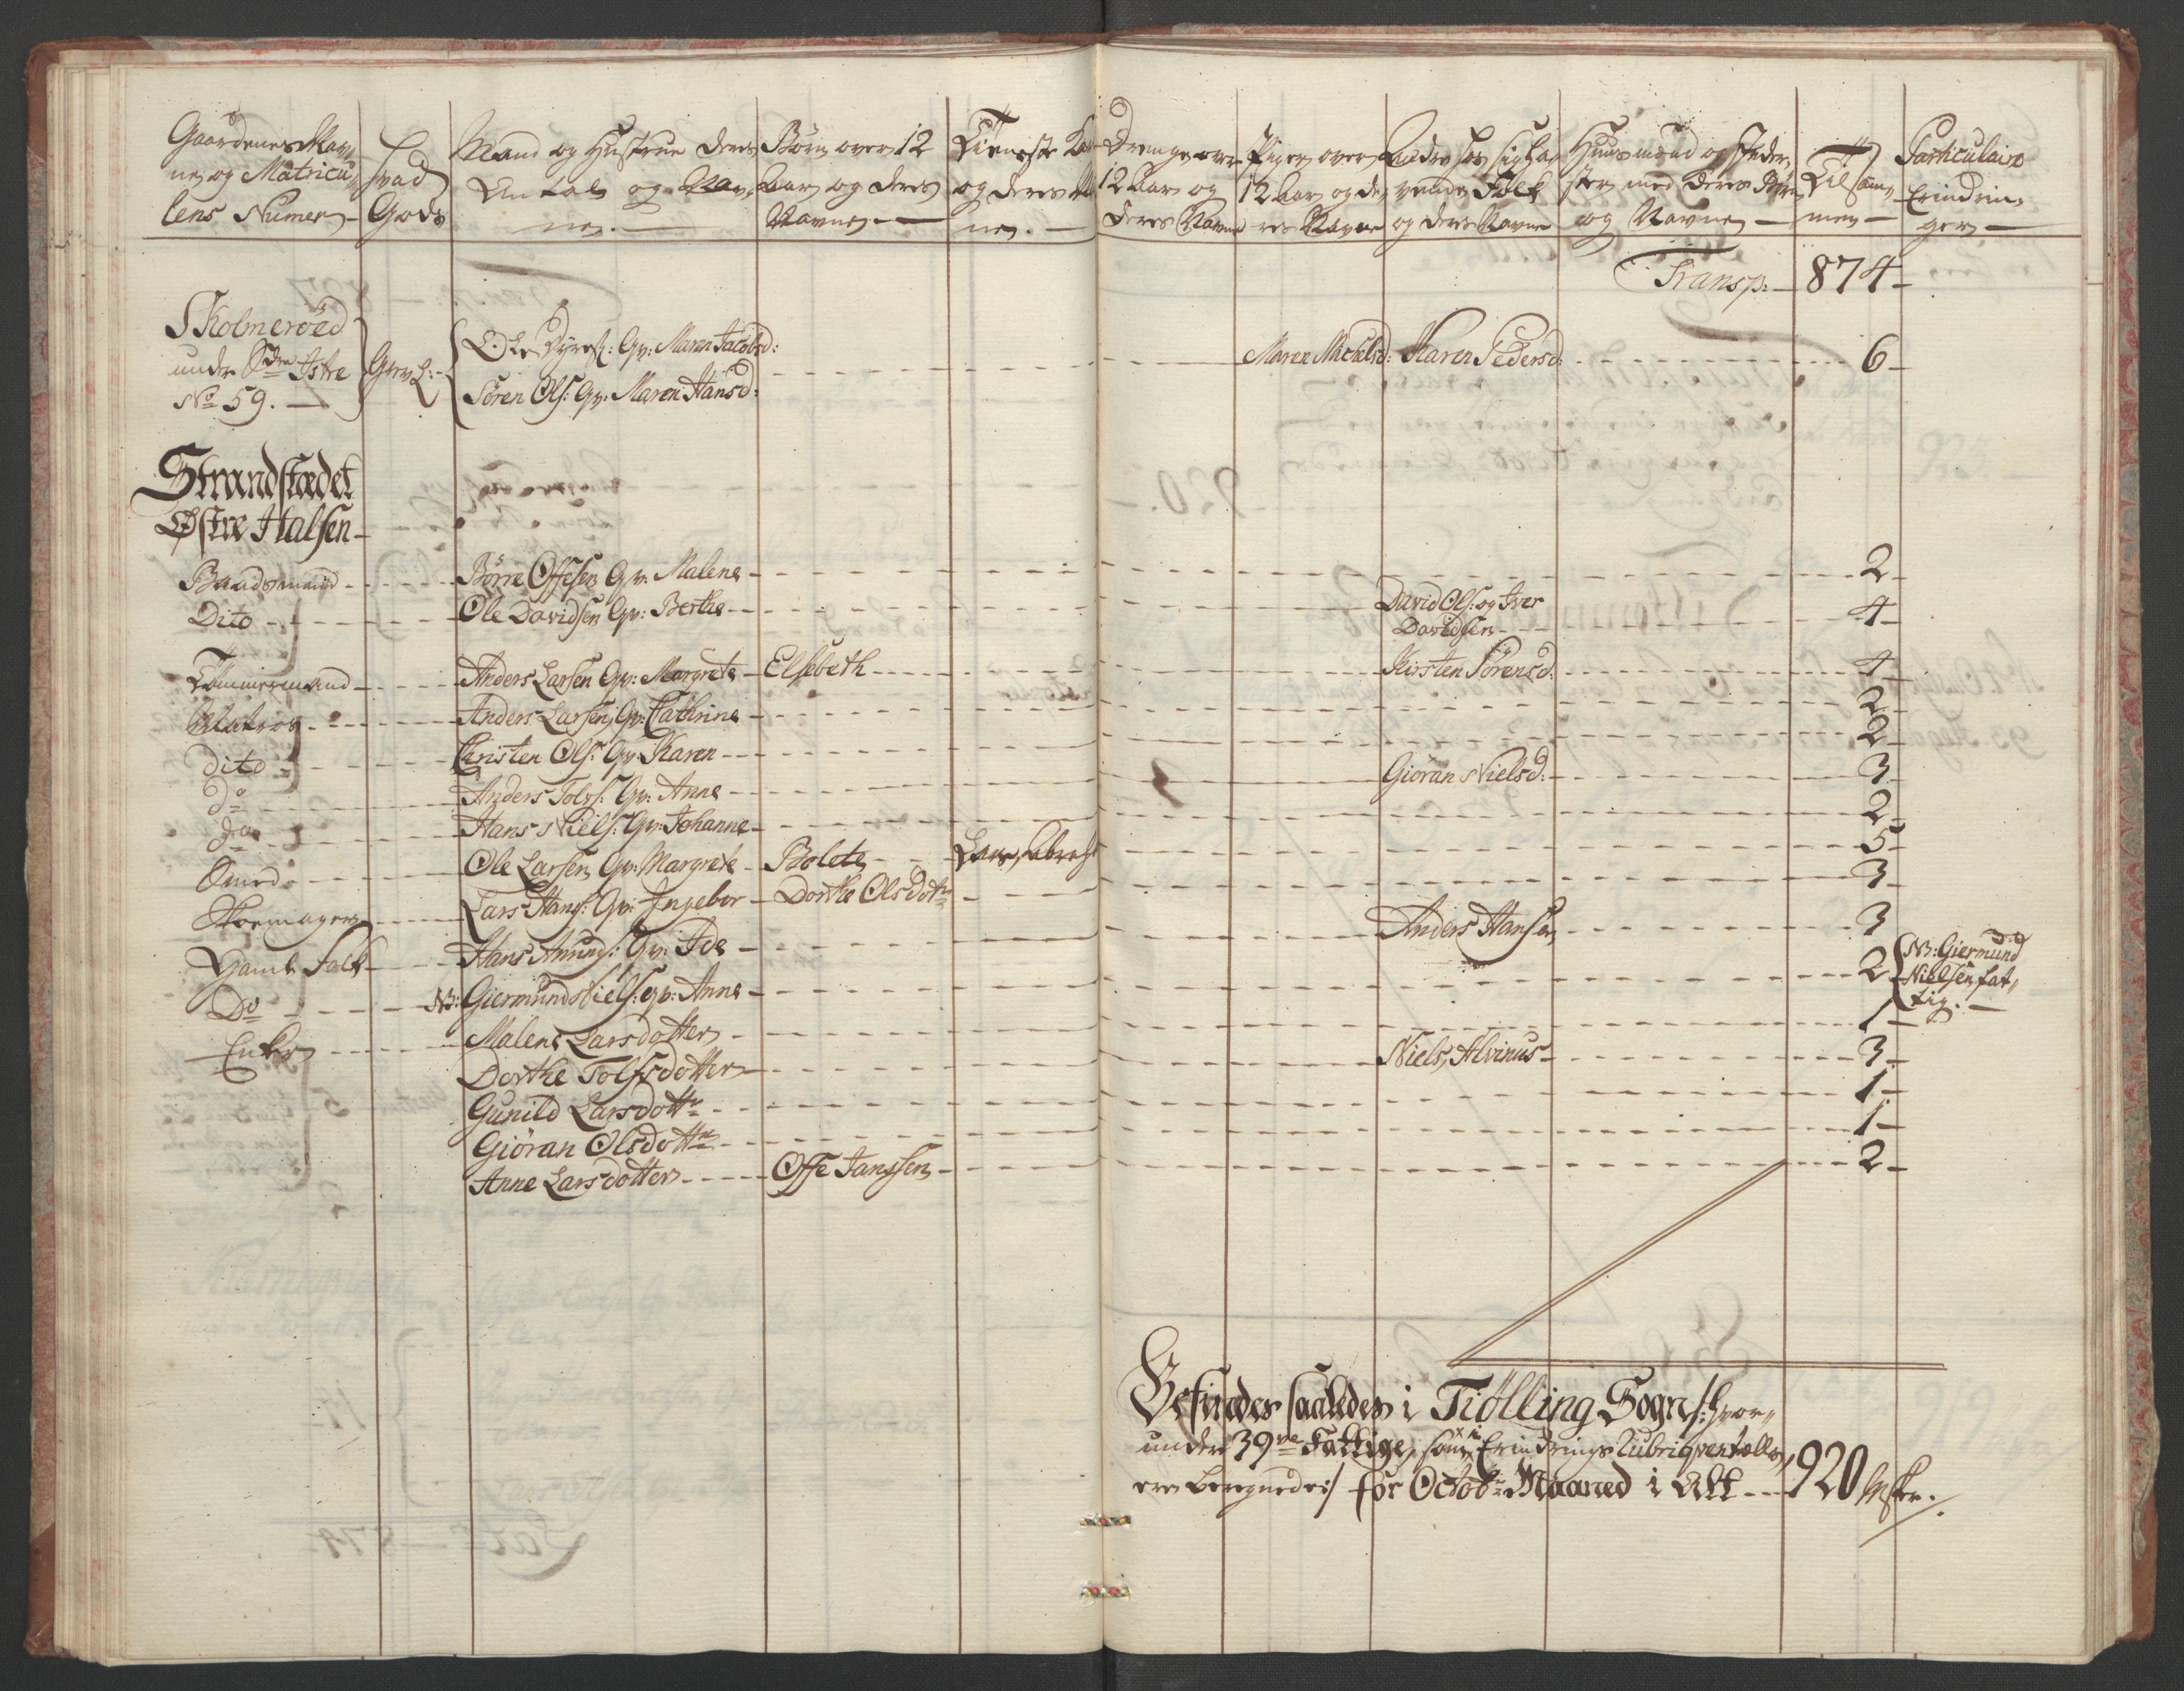 Gaardenes Nav,,
ne og Matricu,,
lens Numer
Hvad
Gods
Mand og Hustrue deres
Antal og Nav,
ne.
Børn over 12
Aar og deres
Navne
Tieneste
og deres
ne.
Drenge over
12 Aar og
deres Navne
Piger over
12 Aar og de,
res Navne
Andre hos sig ha,
vende Folk
og deres Navne
Huusmænd og Inder,
ster med deres Børn
og Navne
Tilsam,
men
Particulaire
Erindrin,
ger
Transp: 874
SKolmeröed
under Sdre Istre
No 59.
Grevs:
Ole Dyres: Qv: Maren Jacobsd:
Sören Ols: Qv: Maren Hansd:
Maren Michelsd: Karen Pedersd: 6
Strandstædet
Østre Halsen
Baadsmand Börre Offesen Qv: Malene 2
Dito Ole Davidsen Qv: Berthe David Ols: og Iver 4
Davidsen
Tømmermand Anders Larsen Qv: Margrete Elsebeth Kirsten Sörensd: 4
Matros Anders Larsen, Qv: Cathrine 2
dito Christen Ols: Qv: Karen 2
do Anders Tolfs: Qv: Anne Giöran Nielsd: 3
do Hans Niels: Qv: Johanne 2
Smed Ole Larsen Qv: Margrete Bolete Lars, Abrah: 5
Skoemager Lars Hans: Qv: Ingebor Dorthe Olsdottr 3
Gamle Folk Hans Amunds: Qv: Ide Anders Hansen 3
Do NB: Giermund Niels: qv: Anne 2 NB: Giermund
Nielsen fat,,
tig.
Enker Malene Larsdotter 1
Dorthe Tolfsdotter Niels, Alvinus 3
Gunild Larsdottr 1
Giöran Olsdottr 1
Anne Larsdotter Offe Janssen 2
Befindes saaledes i Tiölling Sogn /: hvor,,
under 39ve Fattige, som i Erindrings Rubriqven
ere beregnede :/ for Octobr Maaned i Alt 920 Msker.